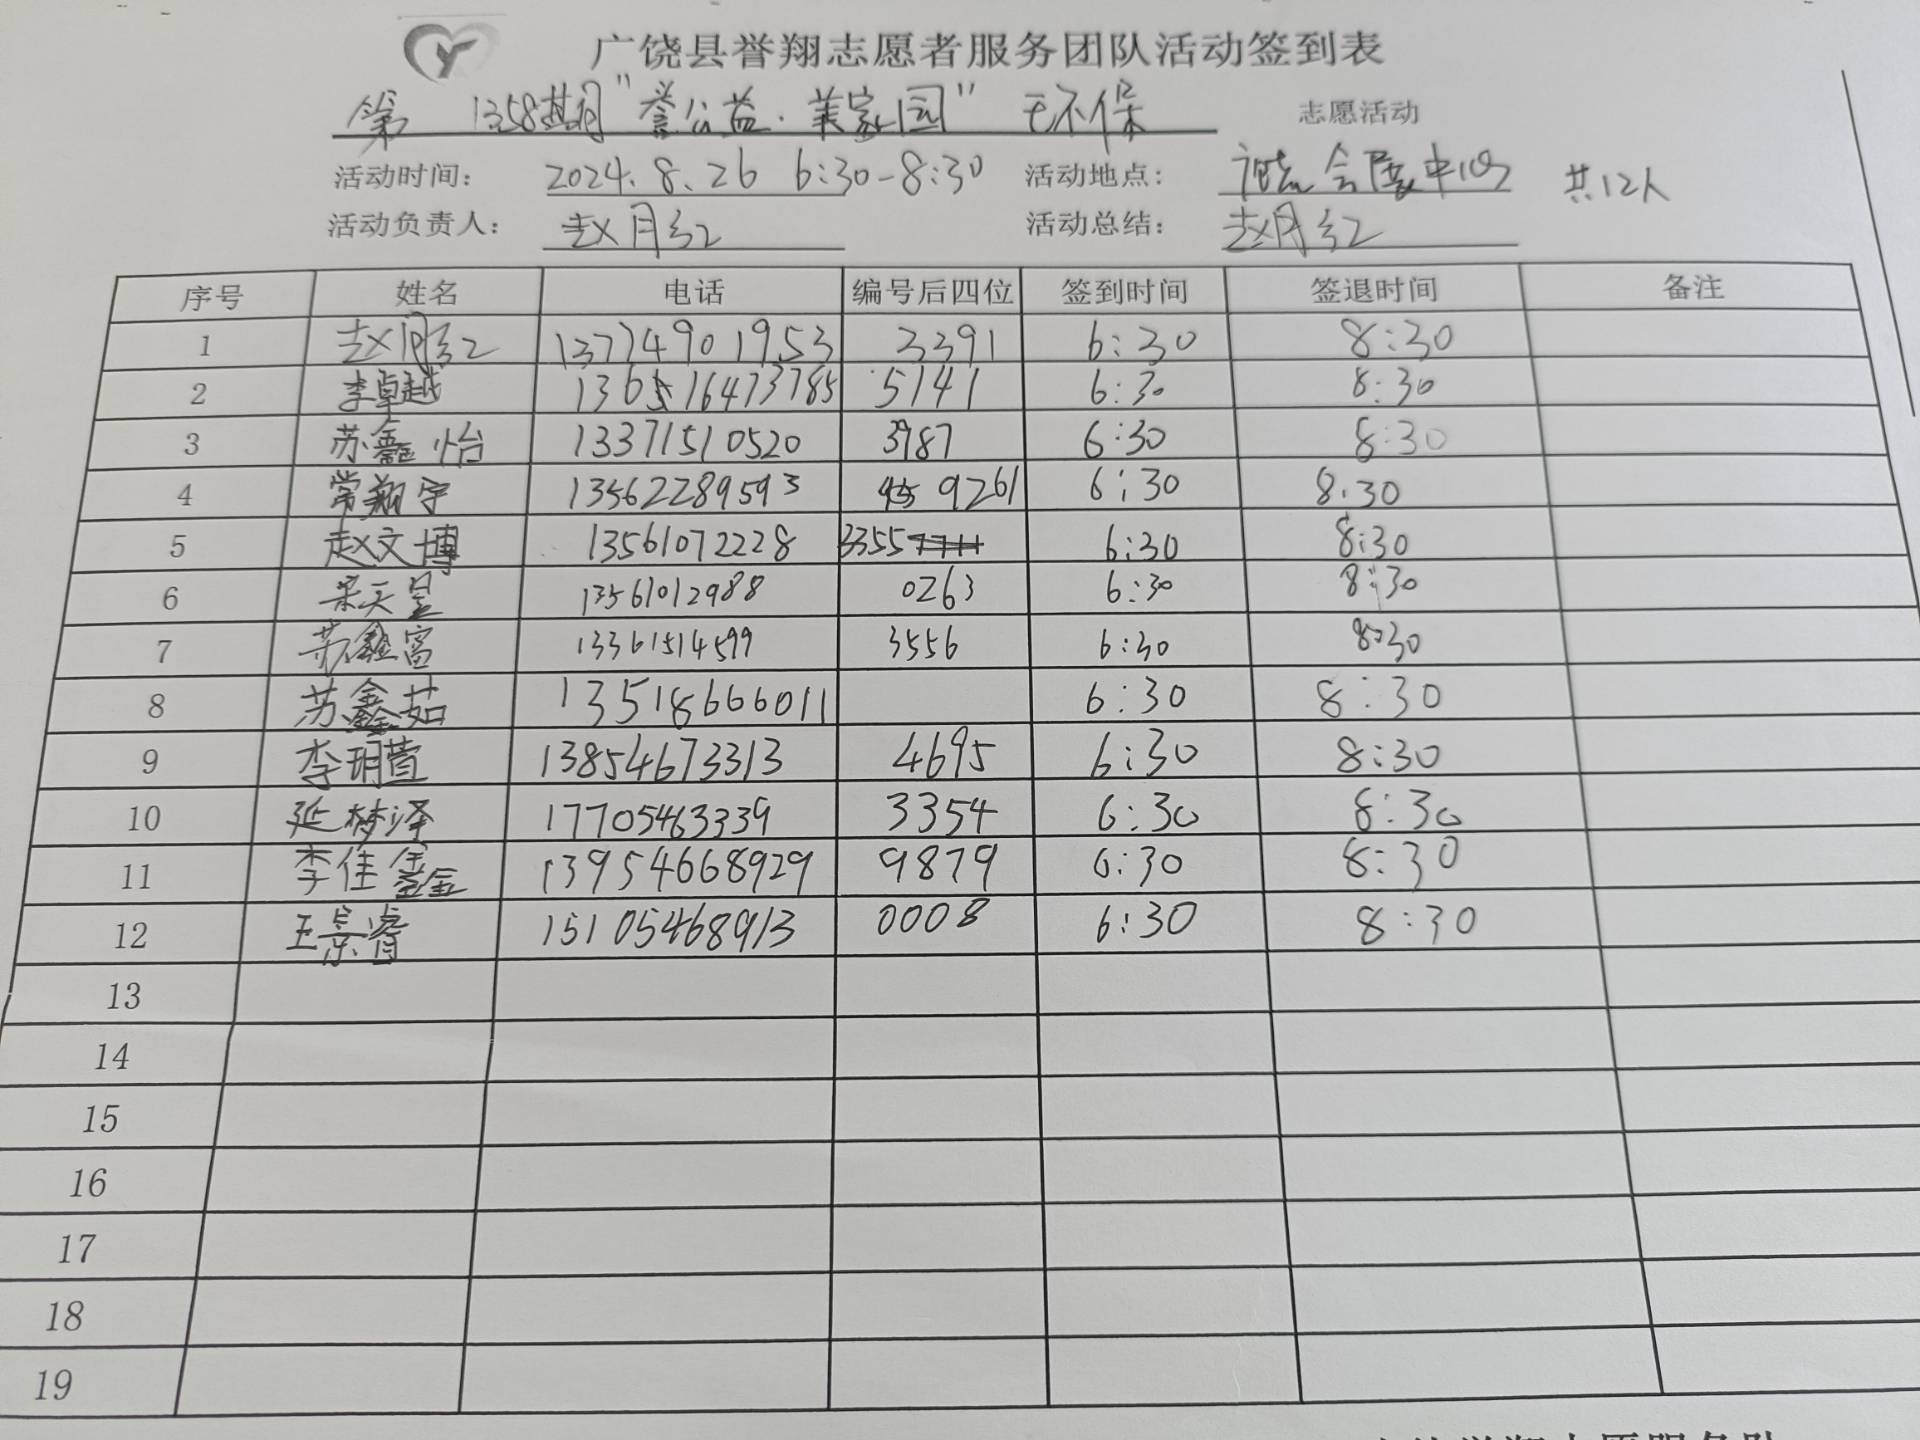 广饶县誉翔志愿者服务团队活动签到表
第 1358期"誉公益·美家园" 环保 志愿活动
活动时间: 2024.8.26 6:30-8:30 活动地点: 会展中心 共12人
活动负责人: 赵月红 活动总结: 赵月红
序号 姓名 电话 编号后四位 签到时间 签退时间 备注
1 赵月红 13774901953 3391 6:30 8:30
2 李卓越 5141 6:30 8:30
3 苏鑫怡 13371510520 3987 6:30 8:30
4 常翔宇 13562289593 9261 6:30 8:30
5 赵文博 13561072228 3355 6:30 8:30
6 13561012988 0263 6:30 8:30
7 苏鑫富 13361514599 3556 6:30 8:30
8 苏鑫茹 13518666011 6:30 8:30
9 李玥萱 13854673313 4695 6:30 8:30
10 延梦泽 17705463339 3354 6:30 8:30
11 李佳鑫 13954668929 9879 6:30 8:30
12 王景睿 15105468913 0008 6:30 8:30
13
14
15
16
17
18
19